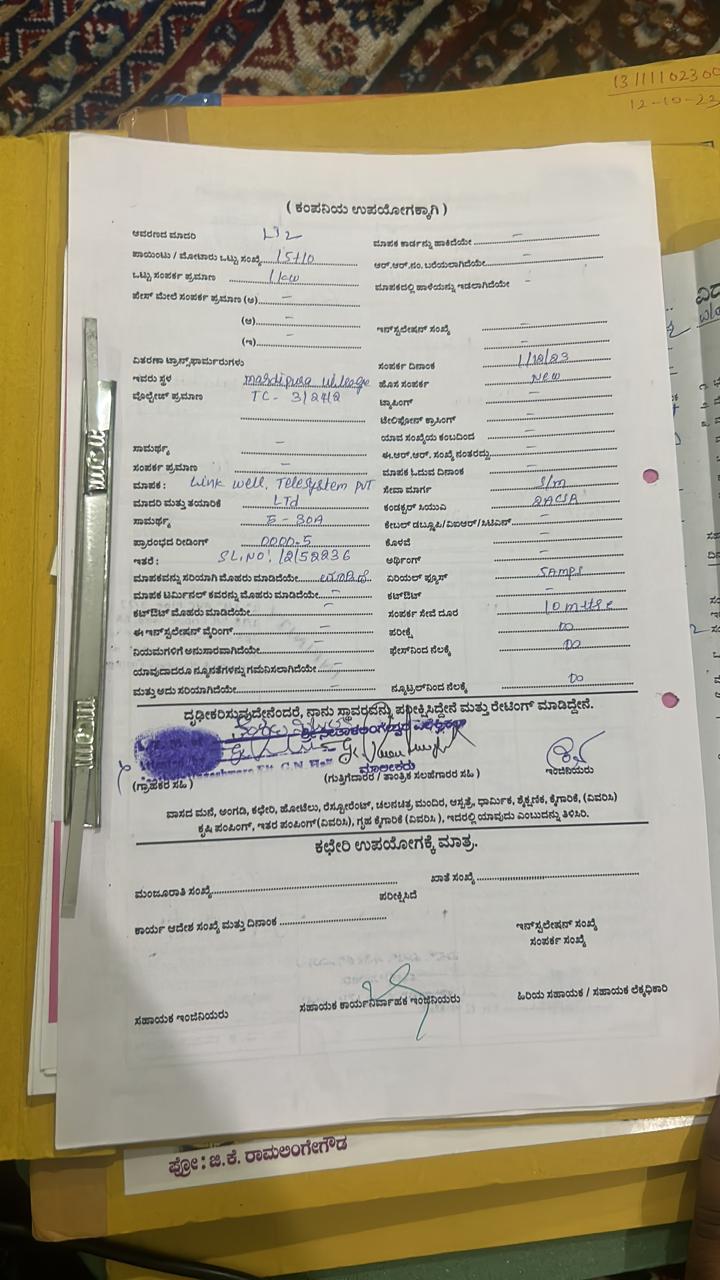 13/11102300
12-10-23
( ಕಂಪನಿಯ ಉಪಯೋಗಕ್ಕಾಗಿ )
ಆವರಣದ ಮಾದರಿ LT2
ಪಾಯಿಂಟು / ಮೋಟಾರು ಒಟ್ಟು ಸಂಖ್ಯೆ 15+10
ಒಟ್ಟು ಸಂಪರ್ಕ ಪ್ರಮಾಣ 1kw
ಫೇಸ್ ಮೇಲೆ ಸಂಪರ್ಕ ಪ್ರಮಾಣ (ಅ) –
(ಆ) –
(ಇ) –
ವಿತರಣಾ ಟ್ರಾನ್ಸ್‌ಫಾರ್ಮರುಗಳು
ಇವರು ಸ್ಥಳ
ವೋಲ್ಟೇಜ್ ಪ್ರಮಾಣ TC-3/242
ಸಾಮರ್ಥ್ಯ –
ಸಂಪರ್ಕ ಪ್ರಮಾಣ –
ಮಾಪಕ : Link well, Telesystem PVT
ಮಾದರಿ ಮತ್ತು ತಯಾರಿಕೆ LTd
ಸಾಮರ್ಥ್ಯ 5-30A
ಪ್ರಾರಂಭದ ರೀಡಿಂಗ್ 0000.5
ಇತರೆ : SL.NO: 12152236
ಮಾಪಕವನ್ನು ಸರಿಯಾಗಿ ಮೊಹರು ಮಾಡಿದೆಯೇ
ಮಾಪಕ ಟರ್ಮಿನಲ್ ಕವರನ್ನು ಮೊಹರು ಮಾಡಿದೆಯೇ –
ಕಟ್‌ಔಟ್ ಮೊಹರು ಮಾಡಿದೆಯೇ –
ಈ ಇನ್‌ಸ್ಟಲೇಷನ್ ವೈರಿಂಗ್ –
ನಿಯಮಗಳಿಗೆ ಅನುಸಾರವಾಗಿದೆಯೇ –
ಯಾವುದಾದರೂ ನ್ಯೂನತೆಗಳನ್ನು ಗಮನಿಸಲಾಗಿದೆಯೇ –
ಮತ್ತು ಅದು ಸರಿಯಾಗಿದೆಯೇ –
ಮಾಪಕ ಕಾರ್ಡನ್ನು ಹಾಕಿದೆಯೇ –
ಆರ್.ಆರ್.ನಂ. ಬರೆಯಲಾಗಿದೆಯೇ –
ಮಾಪಕದಲ್ಲಿ ಹಾಳೆಯನ್ನು ಇಡಲಾಗಿದೆಯೇ –
ಇನ್‌ಸ್ಟಲೇಷನ್ ಸಂಖ್ಯೆ –
–
ಸಂಪರ್ಕ ದಿನಾಂಕ 1/12/23
ಹೊಸ ಸಂಪರ್ಕ New
ಟ್ಯಾಪಿಂಗ್ –
ಟೆಲಿಫೋನ್ ಕ್ರಾಸಿಂಗ್ –
ಯಾವ ಸಂಖ್ಯೆಯ ಕಂಬದಿಂದ –
ಈ.ಆರ್.ಆರ್. ಸಂಖ್ಯೆ ನಂತರದ್ದು –
ಮಾಪಕ ಓದುವ ದಿನಾಂಕ –
ಸೇವಾ ಮಾರ್ಗ S/m
ಕಂಡಕ್ಟರ್ ಸಿಯುವಿ
ಕೇಬಲ್ ಡಬ್ಲೂಪಿ/ವಿಐಆರ್/ಸಿಟಿಎಸ್ –
ಕೊಳವೆ –
ಅರ್ಥಿಂಗ್ –
ಏರಿಯಲ್ ಫ್ಯೂಸ್ 5Amps
ಕಟ್‌ಔಟ್ –
ಸಂಪರ್ಕ ಸೇವೆ ದೂರ
ಪರೀಕ್ಷೆ Do
ಫೇಸ್‌ನಿಂದ ನೆಲಕ್ಕೆ Do
ನ್ಯೂಟ್ರಲ್‌ನಿಂದ ನೆಲಕ್ಕೆ Do
ದೃಢೀಕರಿಸುವುದೇನೆಂದರೆ, ನಾನು ಸ್ಥಾವರವನ್ನು ಪರೀಕ್ಷಿಸಿದ್ದೇನೆ ಮತ್ತು ರೇಟಿಂಗ್ ಮಾಡಿದ್ದೇನೆ.
ಮಾಲೀಕರು
(ಗ್ರಾಹಕರ ಸಹಿ )
(ಗುತ್ತಿಗೆದಾರರ / ತಾಂತ್ರಿಕ ಸಲಹೆಗಾರರ ಸಹಿ )
ಇಂಜಿನಿಯರು
ವಾಸದ ಮನೆ, ಅಂಗಡಿ, ಕಛೇರಿ, ಹೋಟೆಲು, ರೆಸ್ಟೋರೆಂಟ್, ಚಲನಚಿತ್ರ ಮಂದಿರ, ಆಸ್ಪತ್ರೆ, ಧಾರ್ಮಿಕ, ಶೈಕ್ಷಣಿಕ, ಕೈಗಾರಿಕೆ, (ವಿವರಿಸಿ)
ಕೃಷಿ ಪಂಪಿಂಗ್, ಇತರ ಪಂಪಿಂಗ್(ವಿವರಿಸಿ), ಗೃಹ ಕೈಗಾರಿಕೆ (ವಿವರಿಸಿ ), ಇದರಲ್ಲಿ ಯಾವುದು ಎಂಬುದನ್ನು ತಿಳಿಸಿರಿ.
ಕಛೇರಿ ಉಪಯೋಗಕ್ಕೆ ಮಾತ್ರ.
ಮಂಜೂರಾತಿ ಸಂಖ್ಯೆ
ಖಾತೆ ಸಂಖ್ಯೆ
ಪರೀಕ್ಷಿಸಿದೆ
ಕಾರ್ಯ ಆದೇಶ ಸಂಖ್ಯೆ ಮತ್ತು ದಿನಾಂಕ
ಇನ್‌ಸ್ಟಲೇಷನ್ ಸಂಖ್ಯೆ
ಸಂಪರ್ಕ ಸಂಖ್ಯೆ
ಸಹಾಯಕ ಇಂಜಿನಿಯರು
ಸಹಾಯಕ ಕಾರ್ಯನಿರ್ವಾಹಕ ಇಂಜಿನಿಯರು
ಹಿರಿಯ ಸಹಾಯಕ / ಸಹಾಯಕ ಲೆಕ್ಕಧಿಕಾರಿ
ಪ್ರೋ : ಜಿ.ಕೆ. ರಾಮಲಿಂಗೇಗೌಡ